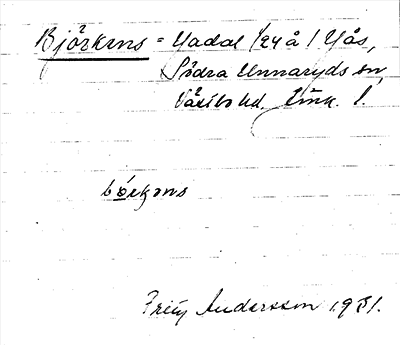 Björkens = Yadal /24 å / Yås,
Södra Unnaryds sn,
Västbo hd, Jönk. l.
börkens
Frey Andersson 1931.